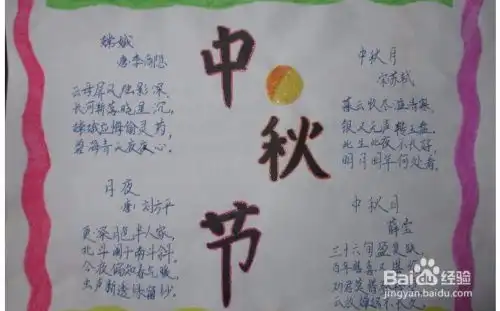 中秋节
嫦娥
唐·李商隐
云母屏风烛影深,
长河渐落晓星沉,
嫦娥应悔偷灵药,
碧海青天夜夜心。
月夜
唐 刘方平
更深月色半人家,
北斗阑干南斗斜。
今夜偏知春气暖,
虫声新透绿窗纱。
中秋月
宋苏轼
暮云收尽溢清寒,
银汉无声转玉盘。
此生此夜不长好,
明月明年何处看。
中秋月
薛莹
三十六旬盈复缺,
百年
劝君莫惜
云收
Baidu 经验
jingyan.baidu.com